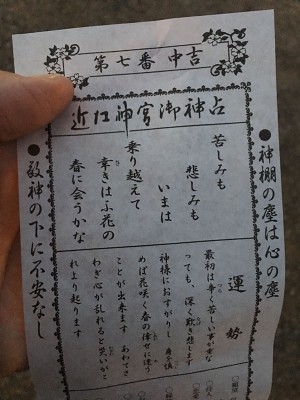 第七番 中吉
近江神宮御神占
●神棚の塵は心の塵
苦しみも
悲しみも
いまは
乗り越えて
幸きはふ花の
春に会うかな
●敬神の下に不安なし
運勢
最初は辛く苦しい事が重な
っても、深く歎き悲します
神様におすがりし身を慎
めば花咲く春の倖せに逢う
ことが出来ます あわてさ
わぎ心が乱れると災いがこ
れより起ります